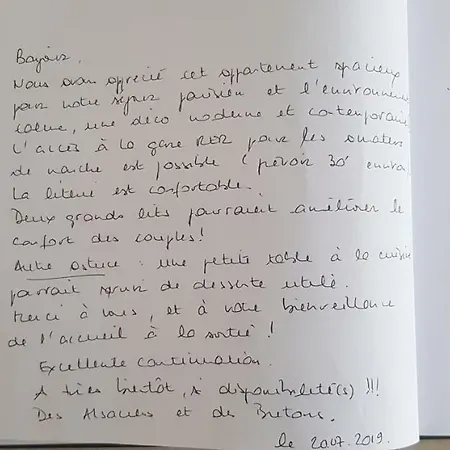 Bonjour.
Nous avons apprécié cet appartement spacieux
pour notre séjour parisien et l'environneme
calme, une déco moderne et contemporaine
L'accès à la gare RER pour les amateurs
de marche est possible (prévoir 30' environ
La literie est confortable.
Deux grands lits pourraient améliorer le
confort des couples!
Autre astuce : une petite table à la cuisine
pourrait servir de desserte utile.
Merci à vous, et à votre bienveillance
de l'accueil à la sortie !
Excellente continuation.
A très bientôt, si disponibilité(s) !!!
Des Alsaciens et des Bretons.
le 20.07.2019.